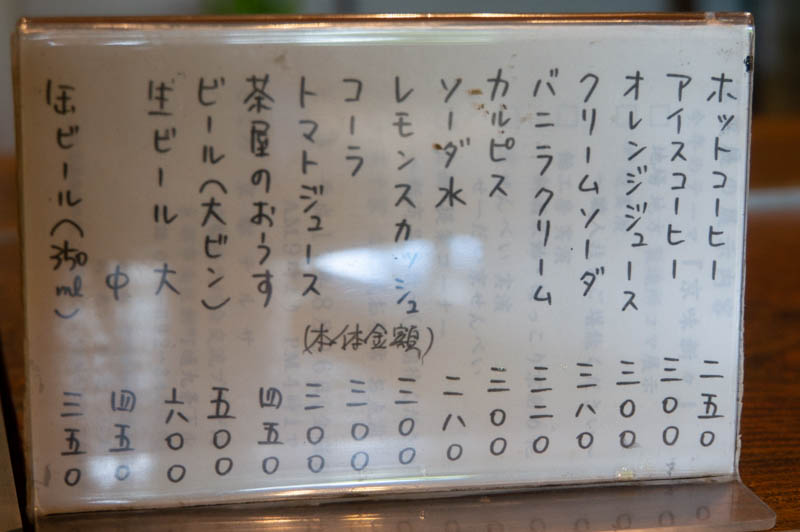 ホットコーヒー 二五〇
アイスコーヒー 三〇〇
オレンジジュース 三〇〇
クリームソーダ 三八〇
バニラクリーム 三二〇
カルピス 三〇〇
ソーダ水 二八〇
レモンスカッシュ 三〇〇
コーラ 三〇〇
トマトジュース 三〇〇
茶屋のおうす 四五〇
ビール(大ビン) 五〇〇
生ビール 大 六〇〇
中 四五〇
缶ビール(350ml) 三五〇
(本体金額)